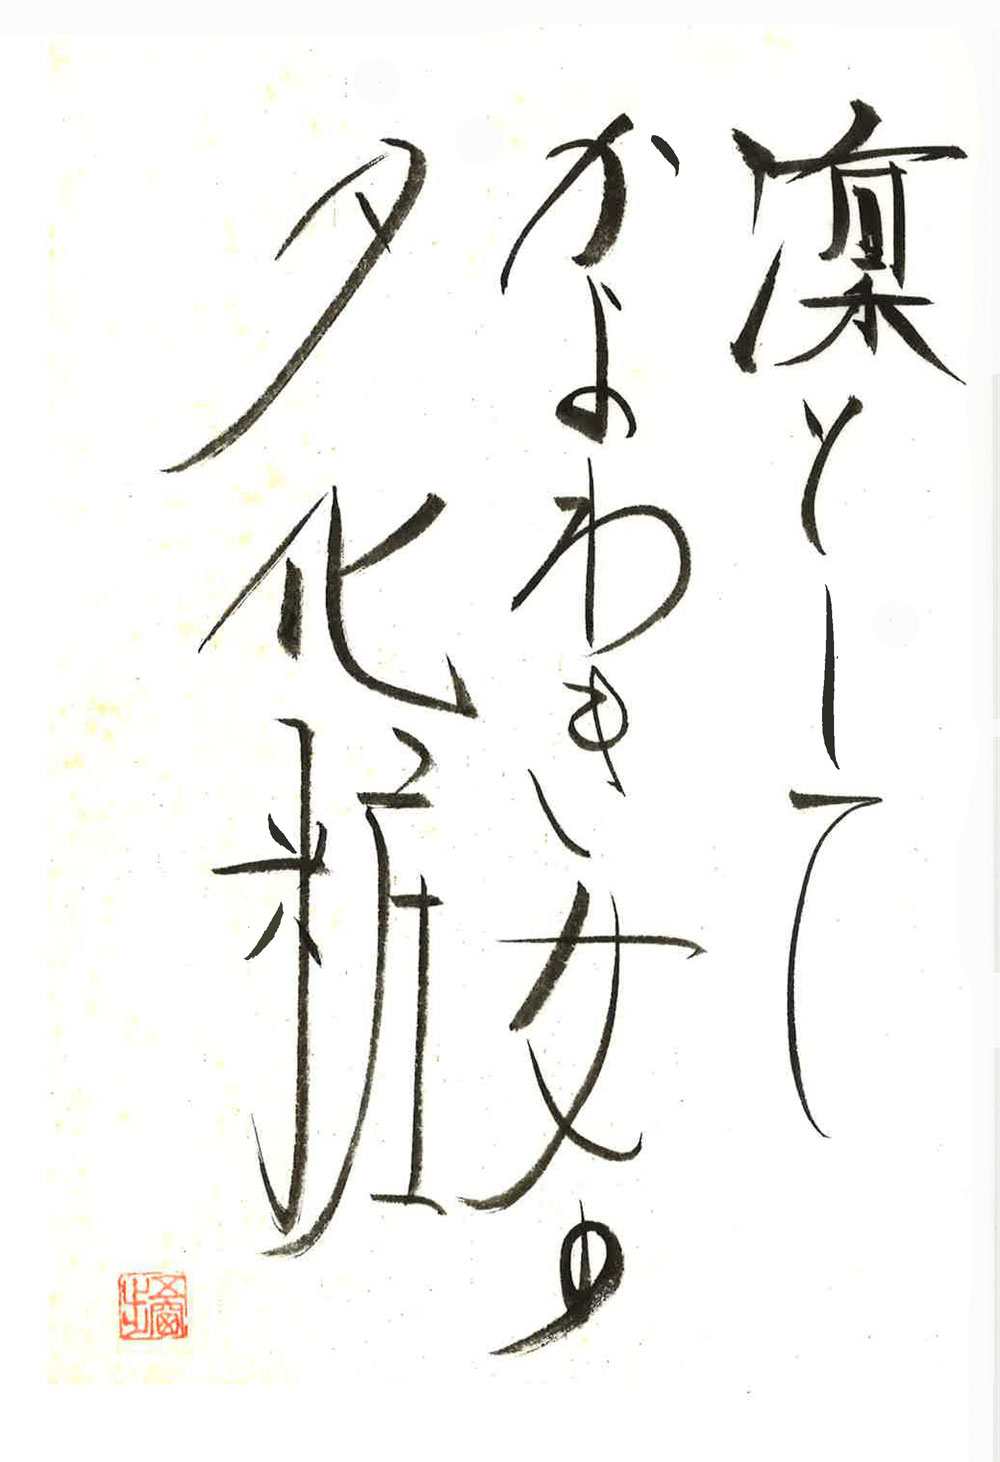 凛として
かよわき女の
夕化粧